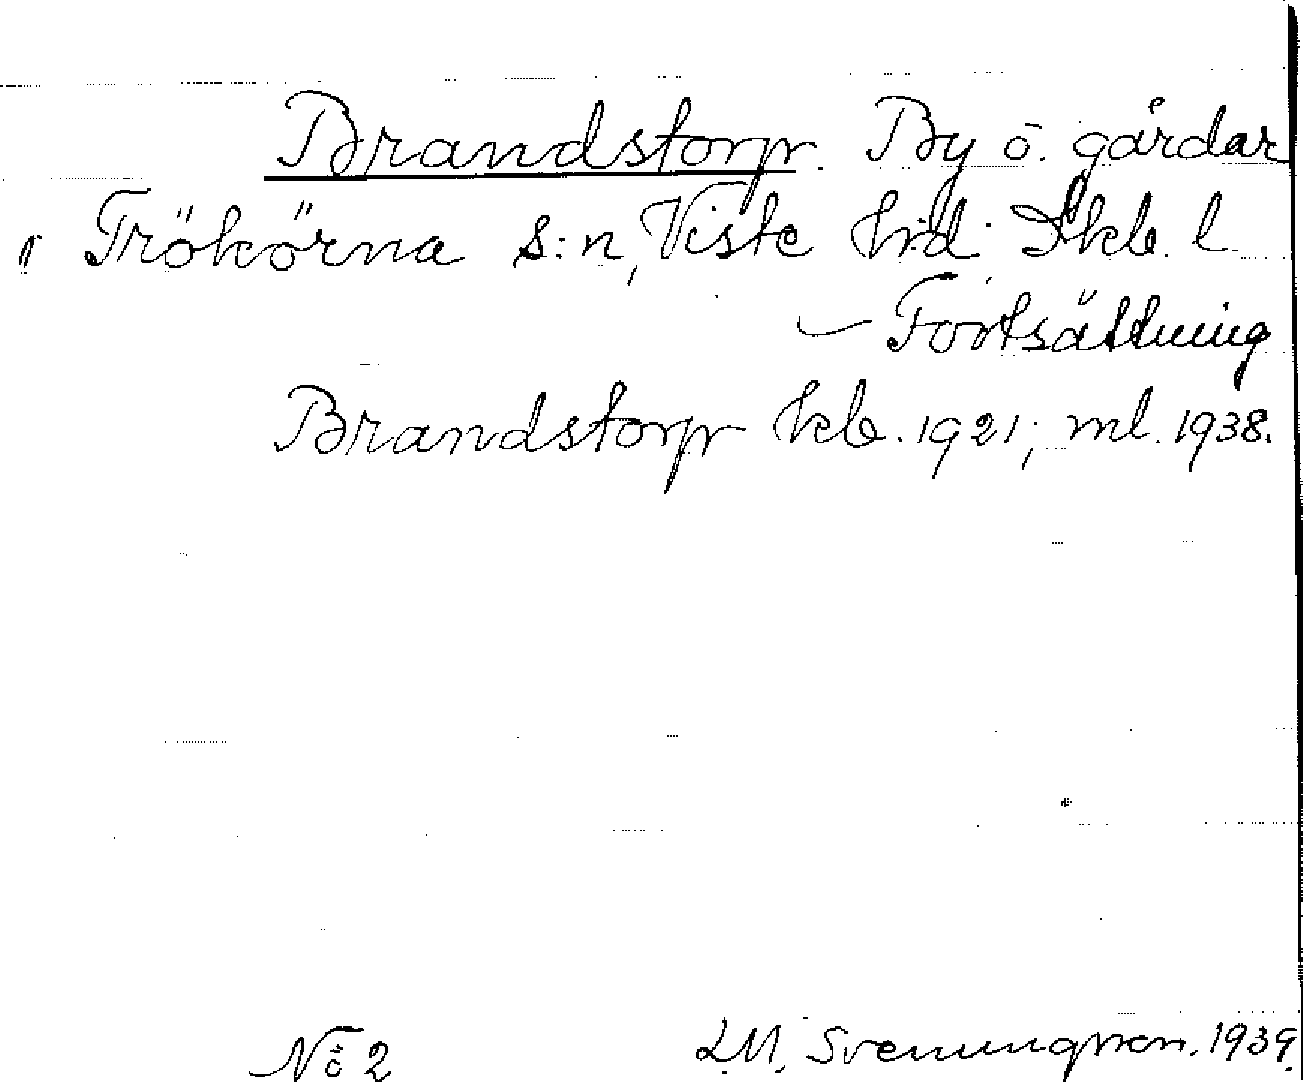 Brandstorp. By o. gårdar
i Trökörna s:n, Viste hrd. Skb. l
– Fortsättning
Brandstorp kb. 1921; ml. 1938.
No 2 L.M. Svenungsson. 1939.